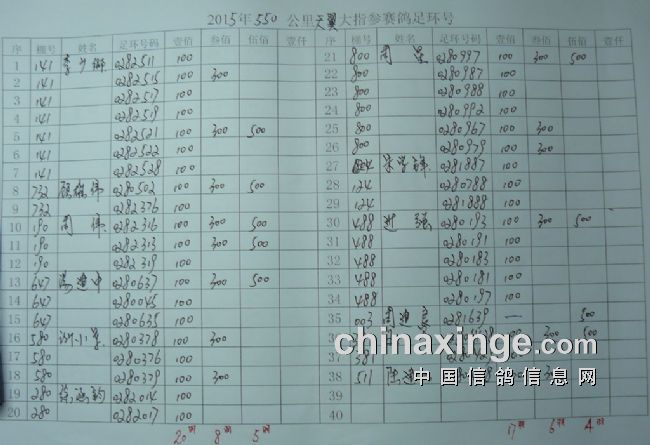 2015年550公里天翼大指参赛鸽足环号
序 棚号 姓名 足环号码 壹佰 叁佰 伍佰 壹仟 序 棚号 姓名 足环号码 壹佰 叁佰 伍佰 壹仟
1 141 0282511 100 21 800 周 0280997 100 300 500
2 141 0282515 100 300 22 800 0280987 100
3 141 0282517 100 23 800 0280988 100
4 141 0282519 100 24 800 0280992 100
5 141 0282521 100 300 500 25 800 0280967 100 300
6 141 0282522 100 26 800 0280979 100 300
7 141 0282528 100 27 0281887 100
8 732 伟 0280502 100 300 500 28 124 0280788 100
9 732 0282376 100 29 124 0281888 100
10 190 周 伟 0282316 100 300 500 30 488 0280193 100 300 500
11 190 0282313 100 300 500 31 488 0280191 100
12 190 0282319 100 32 488 0280183 100
13 647 0280637 100 300 500 33 488 0280181 100
14 647 0280045 100 34 488 0280197 100
15 647 0280635 100 35 003 周 0281639 — 500
16 580 小军 0280378 100 300 36 100 300 500
17 580 0280376 100 37 581 100
18 580 0280379 100 300 38 511 陈 100 300
19 280 0282014 100 39
20 280 0282017 100 40
20羽 8羽 5羽 17羽 6羽 4羽
chinaxinge.com
中国信鸽信息网